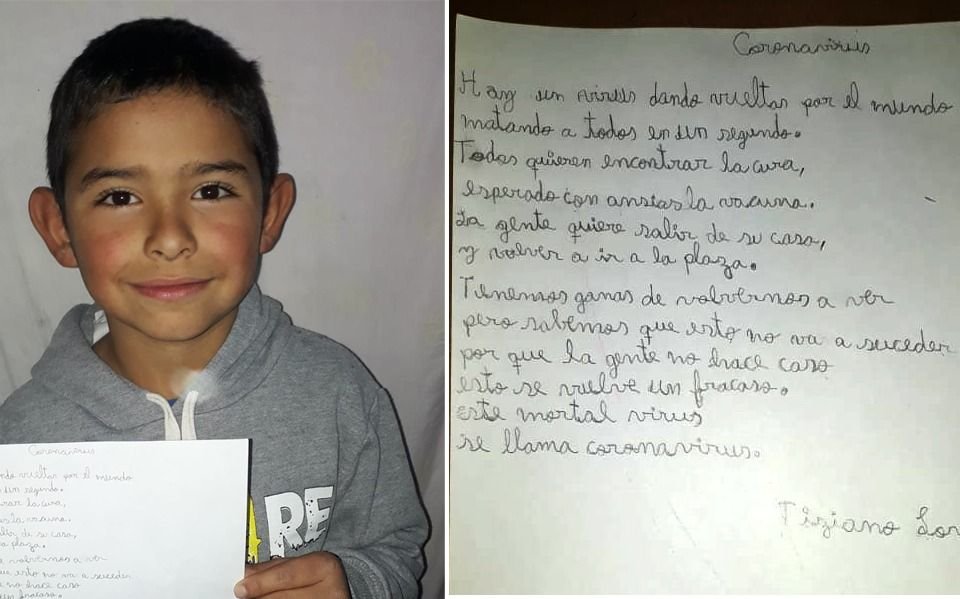 Coronavirus
Hay un virus dando vueltas por el mundo
matando a todos en un segundo.
Todos quieren encontrar la cura,
esperado con ansias la vacuna.
La gente quiere salir de su casa,
y volver a ir a la plaza.
Tenemos ganas de volvernos a ver
pero sabemos que esto no va a suceder
por que la gente no hace caso
esto se vuelve un fracaso.
este mortal virus
se llama coronavirus.
Tiziano Lor
ARE
Coronavirus
ndo vueltas por el mundo
un segundo.
rar la cura,
as la vacuna.
alir de su casa,
a plaza.
a volvernos a ver
ue esto no va a suceder
te no hace caso
un fracaso.